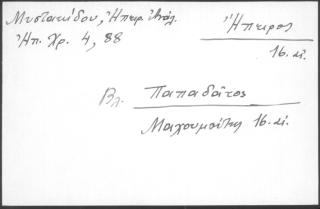 Μυστακίδου, Ἠπειρ. Ἀνάλ.
Ἠπ. Χρ. 4, 88
Ἤπειρος
16. αἰ.
Βλ. Παπαδᾶτος
Μαχουμσίτης 16. αἰ.